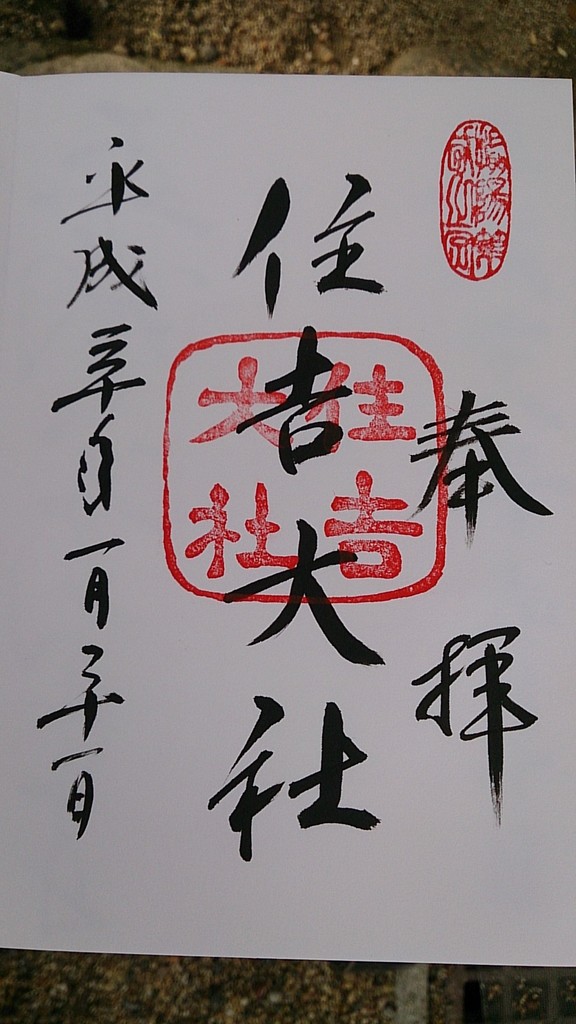 奉拝
住吉大社
住吉
大社
平成三十年一月二十一日